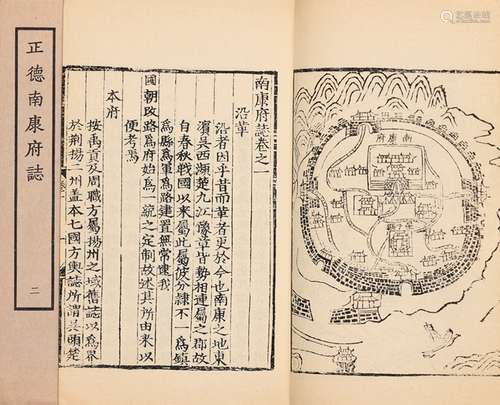 正德南康府誌
二
南康府
南康府誌卷之一
沿革
沿者因乎昔而革者更於今也南康之地東
濱吳西瀕楚九江豫章皆勢相連屬之郡故
自春秋戰國以來屬此屬彼分隸不一爲鎮
爲縣爲軍爲路建置無常逮我
國朝改路爲府始爲一統之定制故述其所由來以
便考焉
本府
按禹貢及周職方屬揚州之域舊誌以爲界
於荆揚二州盖本七國方輿誌所謂吳頭楚